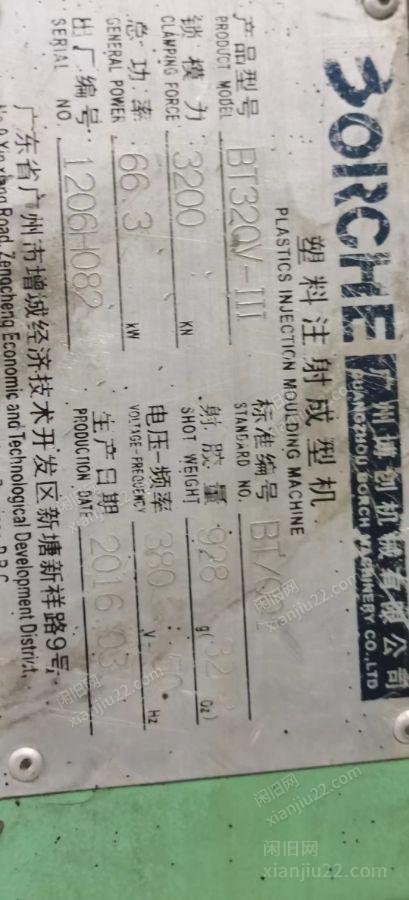 BORCHE
广州博创机械有限公司
GUANGZHOU BORCH MACHINERY CO.,LTD
塑料注射成型机
PLASTICS INJECTION MOULDING MACHINE
产品型号 BT320V-III 标准编号
PRODUCT MODEL STANDARD NO.
锁模力 3200 KN 射胶量 928 g( 32 Oz)
CLAMPING FORCE SHOT WEIGHT
总功率 66.3 KW 电压-频率 380 V- Hz
GENERAL POWER VOLTAGE-FREQUENCY
出厂编号 1206H082 生产日期 2016.03
SERIAL NO. PRODUCTION DATE
广东省广州市增城经济技术开发区新塘新祥路9号
Road, Zengcheng Economic and Technological Development District,
闲旧网
xianjiu22.com
闲旧网
xianjiu22.com